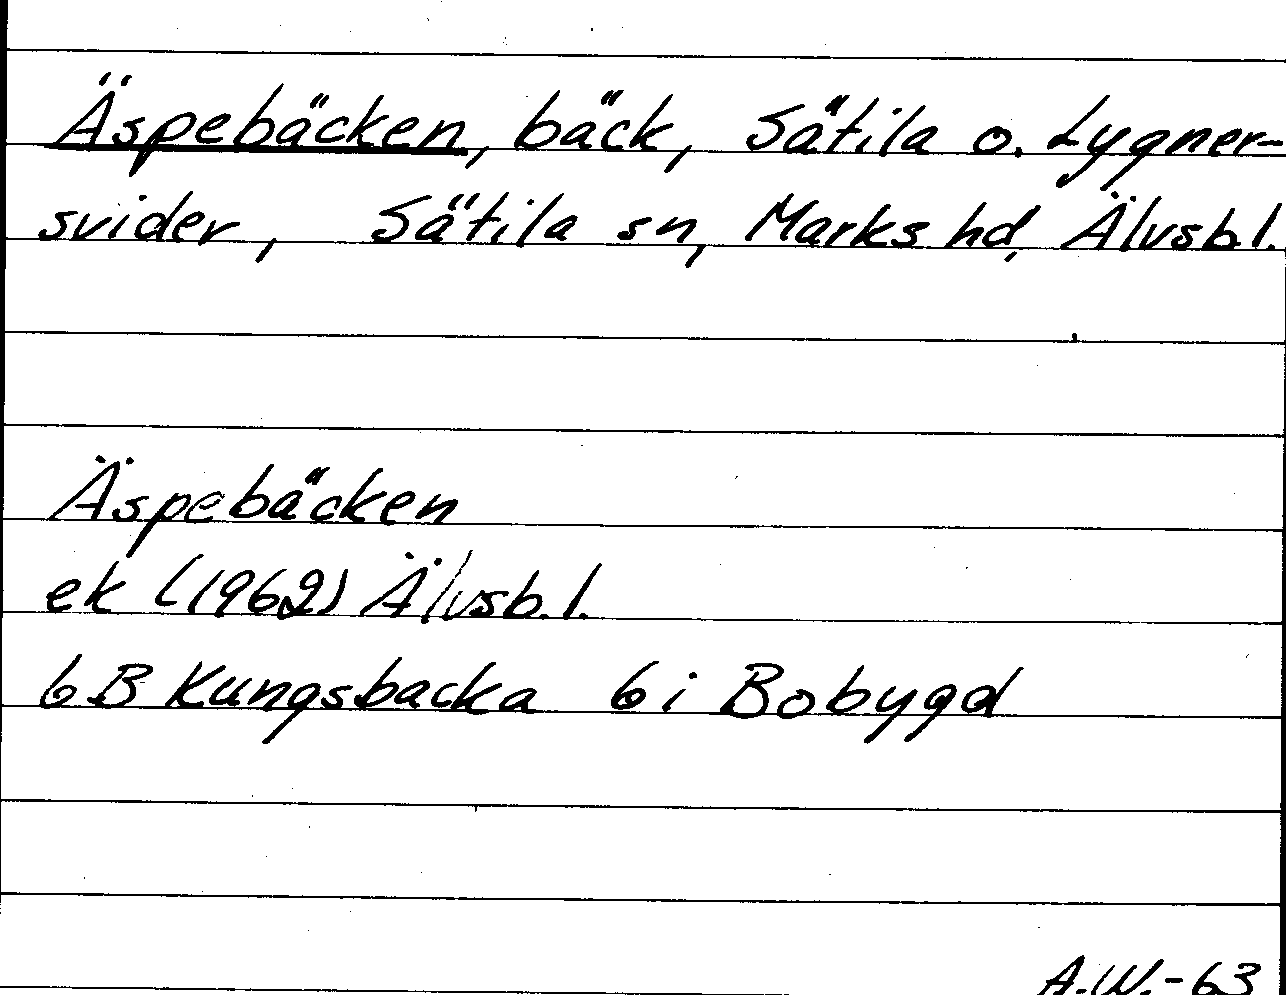 Äspebäcken, bäck, Sätila o. Lygner-
svider, Sätila sn, Marks hd, Älvsb. l.
Äspebäcken
ek (1962) Älvsb. l.
6B Kungsbacka 6i Bobygd
A.W.-63